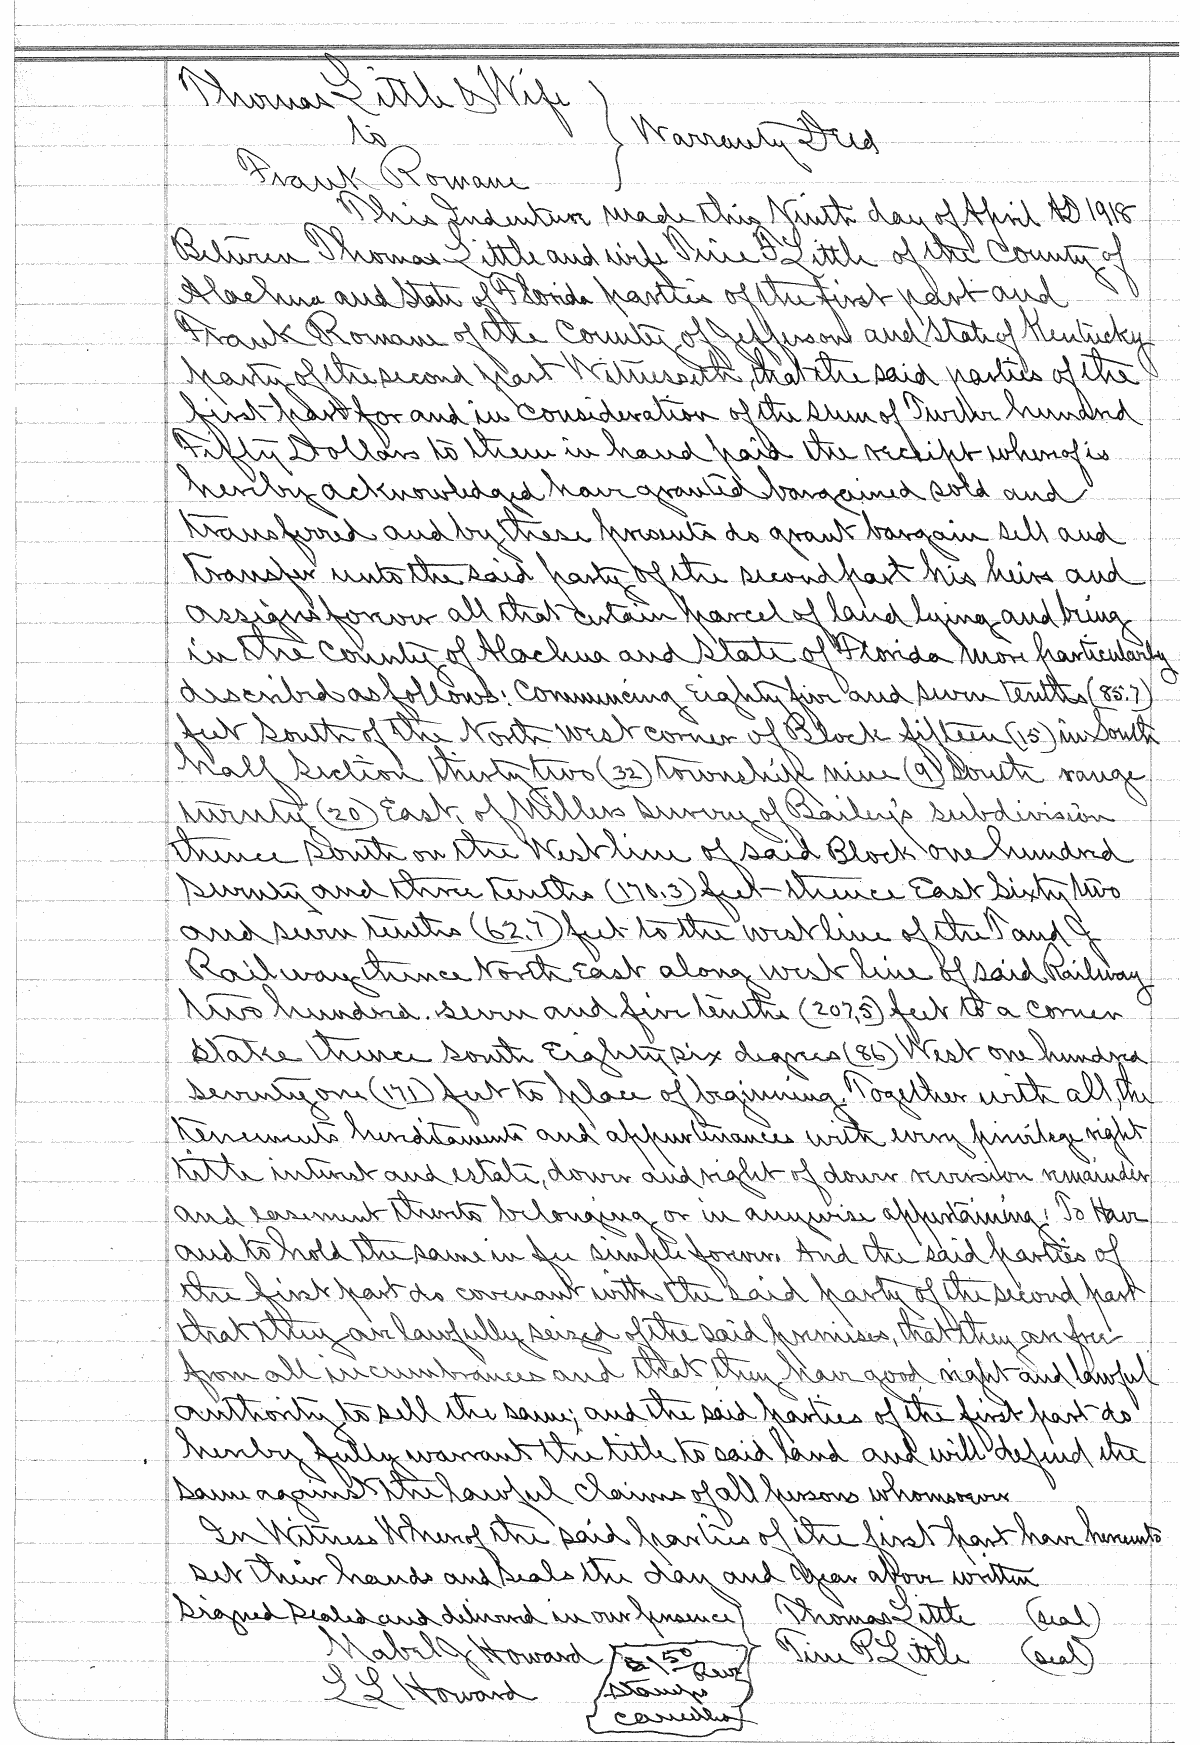 Thomas Little & Wife
to
Warranty Deed
Frank Romane
This Indenture made this Ninth day of April AD 1918
Between Thomas Little and wife Tine P Little of the County of
Alachua and State of Florida parties of the first part and
Frank Romane of the County of Jefferson and State of Kentucky
party of the second part Witnesseth, that the said parties of the
first part for and in consideration of the sum of Twelve hundred
Fifty Dollars to them in hand paid the receipt whereof is
hereby acknowledged have granted bargained sold and
transferred and by these presents do grant bargain sell and
transfer unto the said party of the second part his heirs and
assigns forever all that certain parcel of land lying and being
in the County of Alachua and State of Florida more particularly
described as follows: Commencing eighty five and seven tenths (85.7)
feet South of the North West corner of Block fifteen (15) in South
half Section thirty two (32) township nine (9) South range
twenty (20) East, of Millers Survey of Bailey's subdivision
thence South on the West line of said Block one hundred
seventy and three tenths (170.3) feet - thence East Sixty two
and seven tenths (62.7) feet to the west line of the T and J
Railway thence North East along west line of said Railway
two hundred seven and five tenths (207.5) feet to a corner
stake thence South Eighty six degrees (86) West one hundred
seventy one (171) feet to place of beginning. Together with all, the
tenements hereditaments and appurtenances with every privilege right
title interest and estate, dower and right of dower reversion remainder
and easement thereto belonging or in anywise appertaining: To Have
and to hold the same in fee simple forever. And the said parties of
the first part do covenant with the said party of the second part
that they are lawfully seized of the said premises, that they are free
from all incumbrances and that they have good right and lawful
authority to sell the same; and the said parties of the first part do
hereby fully warrant the title to said land and will defend the
same against the lawful claims of all persons whomsoever
In Witness Whereof the said parties of the first part have hereunto
set their hands and seals the day and year above written
Signed sealed and delivered in our presence Thomas Little (seal)
Mabel J Howard Tine P Little (seal)
L L Howard
$1.50 Rev
Stamps
cancelled